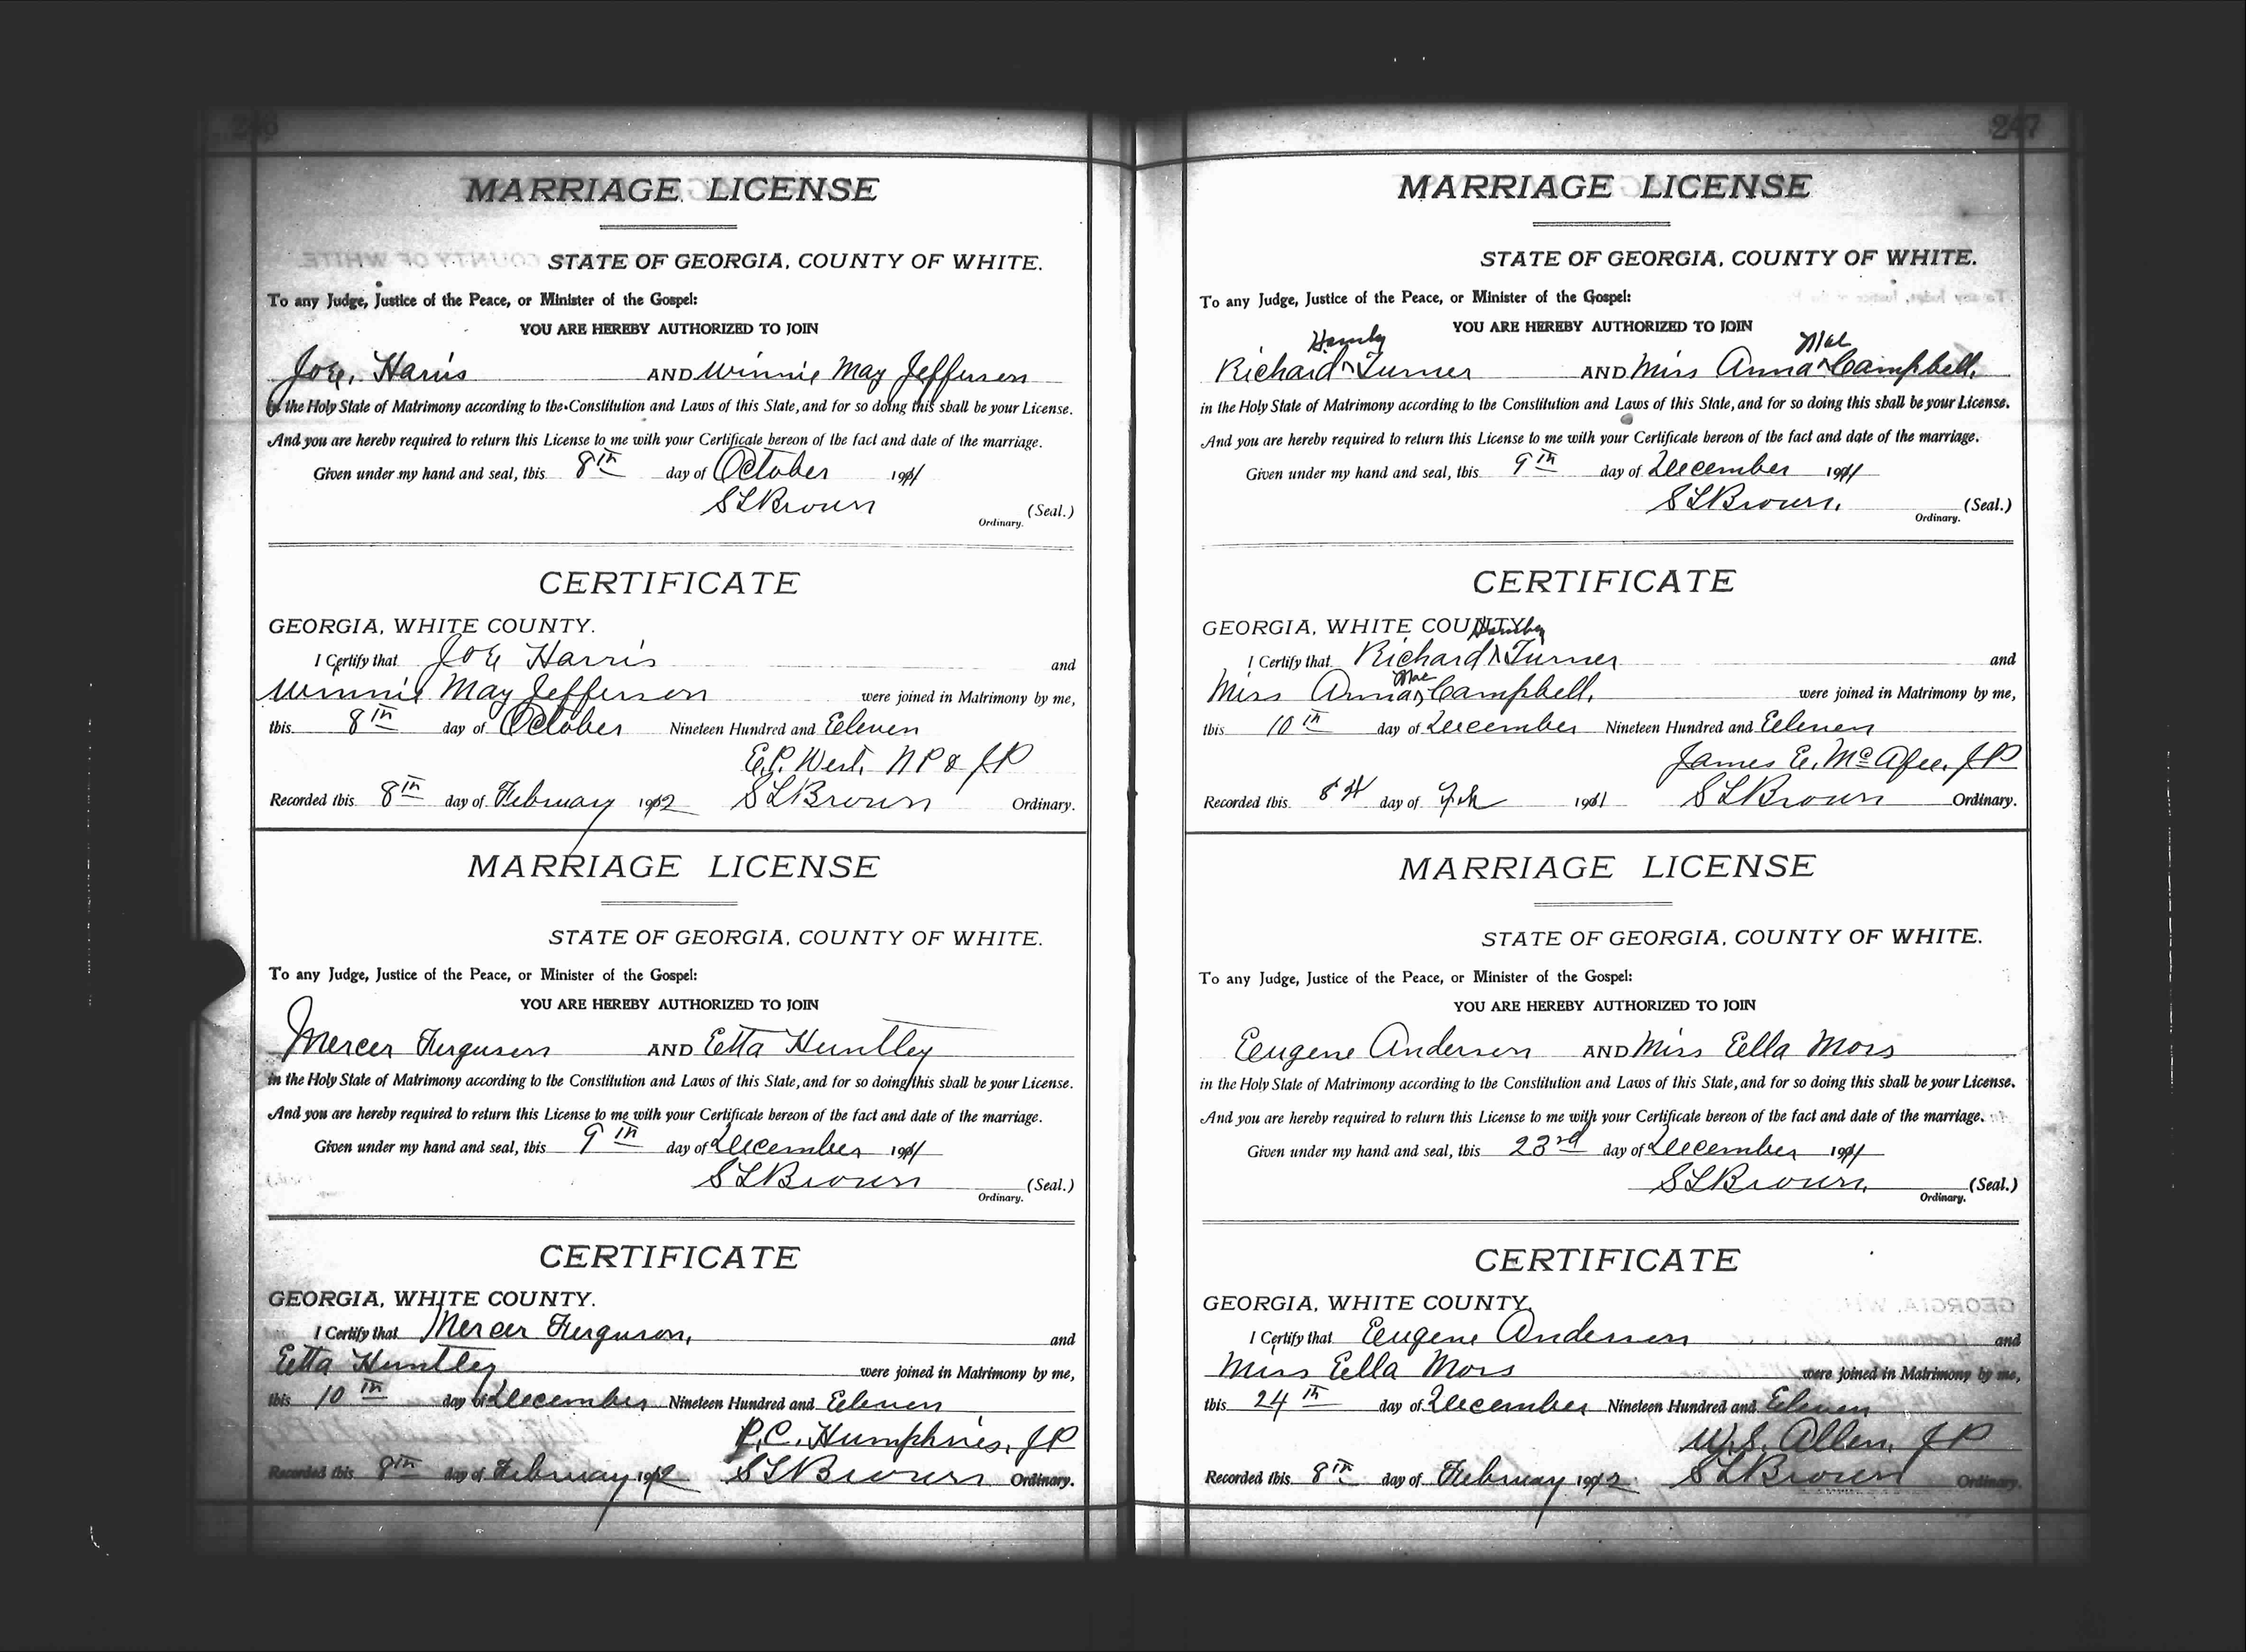 246
MARRIAGE LICENSE
STATE OF GEORGIA, COUNTY OF WHITE.
To any Judge, Justice of the Peace, or Minister of the Gospel:
YOU ARE HEREBY AUTHORIZED TO JOIN
Joe, Harris AND Winnie May Jefferson
in the Holy State of Matrimony according to the Constitution and Laws of this State, and for so doing this shall be your License.
And you are hereby required to return this License to me with your Certificate hereon of the fact and date of the marriage.
Given under my hand and seal, this 8th day of October 1911
S L Brown (Seal.)
Ordinary.
CERTIFICATE
GEORGIA, WHITE COUNTY.
I Certify that Joe Harris and
Winnie May Jefferson were joined in Matrimony by me,
this 8th day of October Nineteen Hundred and Eeleven
E.P. West, NP & JP
Recorded this 8th day of February 1912 S L Brown Ordinary.
MARRIAGE LICENSE
STATE OF GEORGIA, COUNTY OF WHITE.
To any Judge, Justice of the Peace, or Minister of the Gospel:
YOU ARE HEREBY AUTHORIZED TO JOIN
Mercer Ferguson AND Etta Huntley
in the Holy State of Matrimony according to the Constitution and Laws of this State, and for so doing this shall be your License.
And you are hereby required to return this License to me with your Certificate hereon of the fact and date of the marriage.
Given under my hand and seal, this 9th day of December 1911
S L Brown (Seal.)
Ordinary.
CERTIFICATE
GEORGIA, WHITE COUNTY.
I Certify that Mercer Ferguson, and
Etta Huntley were joined in Matrimony by me,
this 10th day of December Nineteen Hundred and Eeleven
P.C. Humphries, JP
Recorded this 8th day of February 1912 S L Brown Ordinary.
247
MARRIAGE LICENSE
STATE OF GEORGIA, COUNTY OF WHITE.
To any Judge, Justice of the Peace, or Minister of the Gospel:
YOU ARE HEREBY AUTHORIZED TO JOIN
Hamby Mae
Richard ^ Turner AND Miss Anna ^ Campbell.
in the Holy State of Matrimony according to the Constitution and Laws of this State, and for so doing this shall be your License.
And you are hereby required to return this License to me with your Certificate hereon of the fact and date of the marriage.
Given under my hand and seal, this 9th day of December 1911
S L Brown. (Seal.)
Ordinary.
CERTIFICATE
GEORGIA, WHITE COUNTY.
Hamby
I Certify that Richard ^ Turner and
Mae
Miss Anna ^ Campbell, were joined in Matrimony by me,
this 10th day of December Nineteen Hundred and Eeleven
James E. McAfee, JP
Recorded this 8th day of Feb 1911 S L Brown Ordinary.
MARRIAGE LICENSE
STATE OF GEORGIA, COUNTY OF WHITE.
To any Judge, Justice of the Peace, or Minister of the Gospel:
YOU ARE HEREBY AUTHORIZED TO JOIN
Eeugene Anderson AND Miss Ella Moss
in the Holy State of Matrimony according to the Constitution and Laws of this State, and for so doing this shall be your License.
And you are hereby required to return this License to me with your Certificate hereon of the fact and date of the marriage.
Given under my hand and seal, this 23rd day of December 1911
S L Brown, (Seal.)
Ordinary.
CERTIFICATE
GEORGIA, WHITE COUNTY.
I Certify that Eeugene Anderson and
Miss Ella Moss were joined in Matrimony by me,
this 24th day of December Nineteen Hundred and Eeleven
W.S. Allen, JP
Recorded this 8th day of February 1912 S L Brown Ordinary.